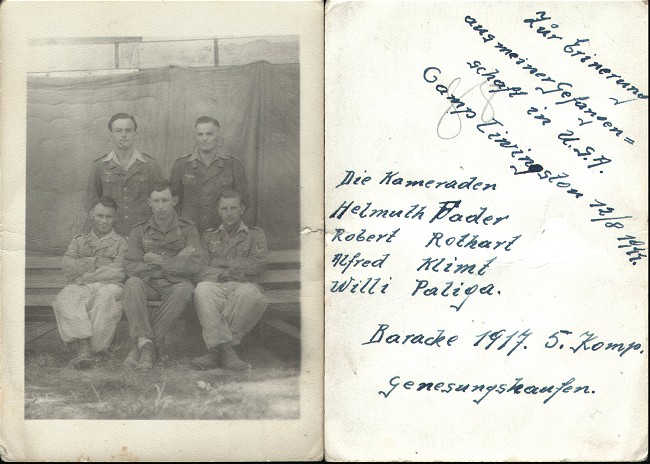 Zür Erinerung
aus meiner Gefangen=
schaft in U.S.A.
Camp Liwingston 12/8 1944.
88
Die Kameraden
Helmuth Fader
Robert Rothart
Alfred Klimt
Willi Paliga.
Baracke 1917. 5. Komp.
Genesungshaufen.